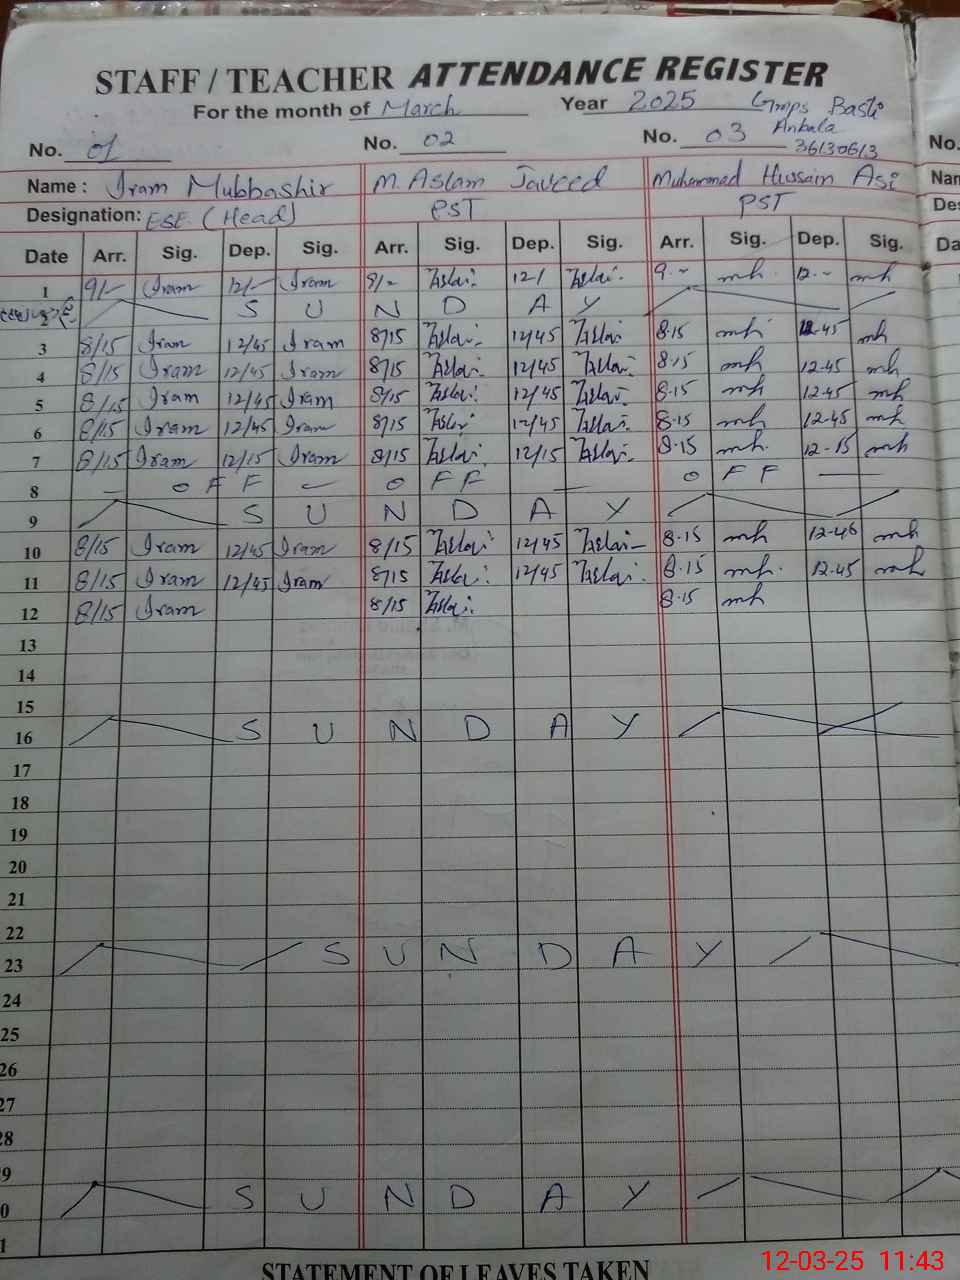 STAFF / TEACHER ATTENDANCE REGISTER
For the month of March Year 2025 Gmps Basti
Ankala
No. 01 No. 02 No. 03 36130613
No.
Name : Iram Mubbashir M. Aslam Javeed Muhammad Hussain Asi
Nam
Designation: ESE (Head) PST PST
Des
Date Arr. Sig. Dep. Sig. Arr. Sig. Dep. Sig. Arr. Sig. Dep. Sig.
Da
1 9/- Iram 12/- Iram 9/- 12/ 9.- mh. 12.- mh
2 S U N D A Y
3 8/15 Iram 12/45 Iram 8/15 12/45 8.15 mh 12.45 mh
4 8/15 Iram 12/45 Iram 8/15 12/45 8.15 mh 12.45 mh
5 8/15 Iram 12/45 Iram 8/15 12/45 8.15 mh 12.45 mh
6 8/15 Iram 12/45 Iram 8/15 12/45 8.15 mh 12.45 mh
7 8/15 Iram 12/15 Iram 8/15 12/15 8.15 mh. 12.15 mh
8 — O F F — O F F — O F F —
9 S U N D A Y
10 8/15 Iram 12/45 Iram 8/15 12/45 8.15 mh mh
11 8/15 Iram 12/45 Iram 8/15 12/45 8.15 mh. 12.45 mh
12 8/15 Iram 8/15 8.15 mh
13
14
15
16 S U N D A Y
17
18
19
20
21
22
23 S U N D A Y
24
25
26
27
28
9
0 S U N D A Y
1
STATEMENT OF LEAVES TAKEN
12-03-25 11:43